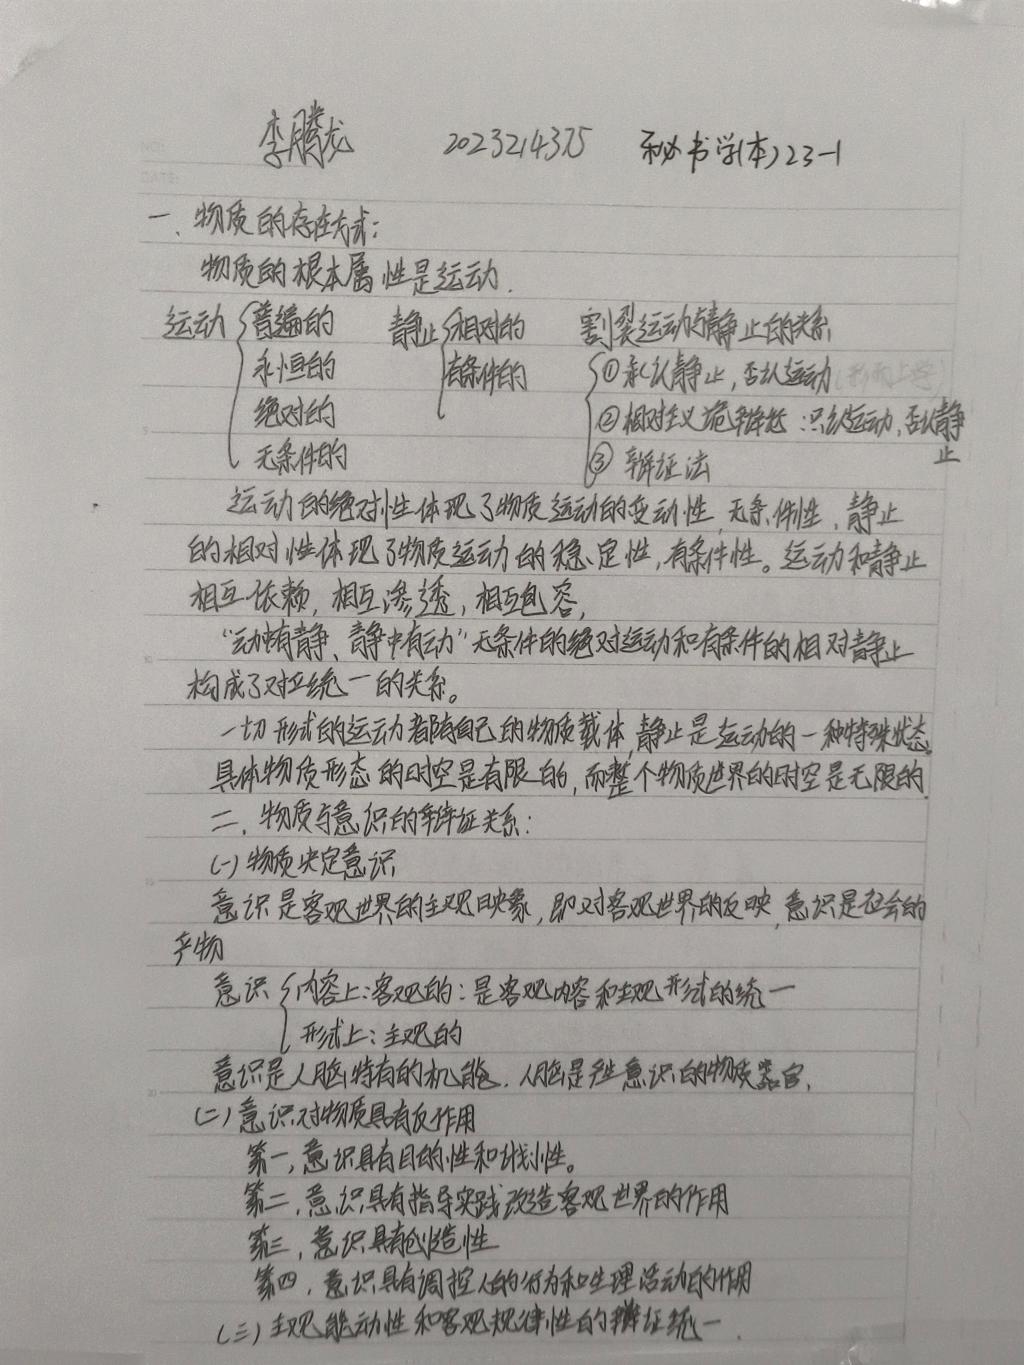 李腾龙 2023214375 秘书学(本)23-1
一、物质的存在方式:
物质的根本属性是运动.
运动 普遍的 静止 相对的 割裂运动与静止的关系
永恒的 有条件的 ①承认静止,否认运动(形而上学)
绝对的 ②相对主义诡辩论:只认运动,否认静止
无条件的 ③辩证法
运动的绝对性体现了物质运动的变动性,无条件性,静止
的相对性体现了物质运动的稳定性,有条件性。运动和静止
相互依赖,相互渗透,相互包容,
“动中有静、静中有动”无条件的绝对运动和有条件的相对静止
构成了对立统一的关系。
一切形式的运动都有自己的物质载体,静止是运动的一种特殊状态。
具体物质形态的时空是有限的,而整个物质世界的时空是无限的.
二、物质与意识的辩证关系:
(一)物质决定意识
意识是客观世界的主观映象,即对客观世界的反映,意识是社会的
产物
意识 内容上:客观的:是客观内容和主观形式的统一
形式上:主观的
意识是人脑特有的机能.人脑是产生意识的物质器官.
(二)意识对物质具有反作用
第一,意识具有目的性和计划性。
第二,意识具有指导实践改造客观世界的作用
第三,意识具有创造性
第四,意识具有调控人的行为和生理活动的作用
(三)主观能动性和客观规律性的辩证统一.